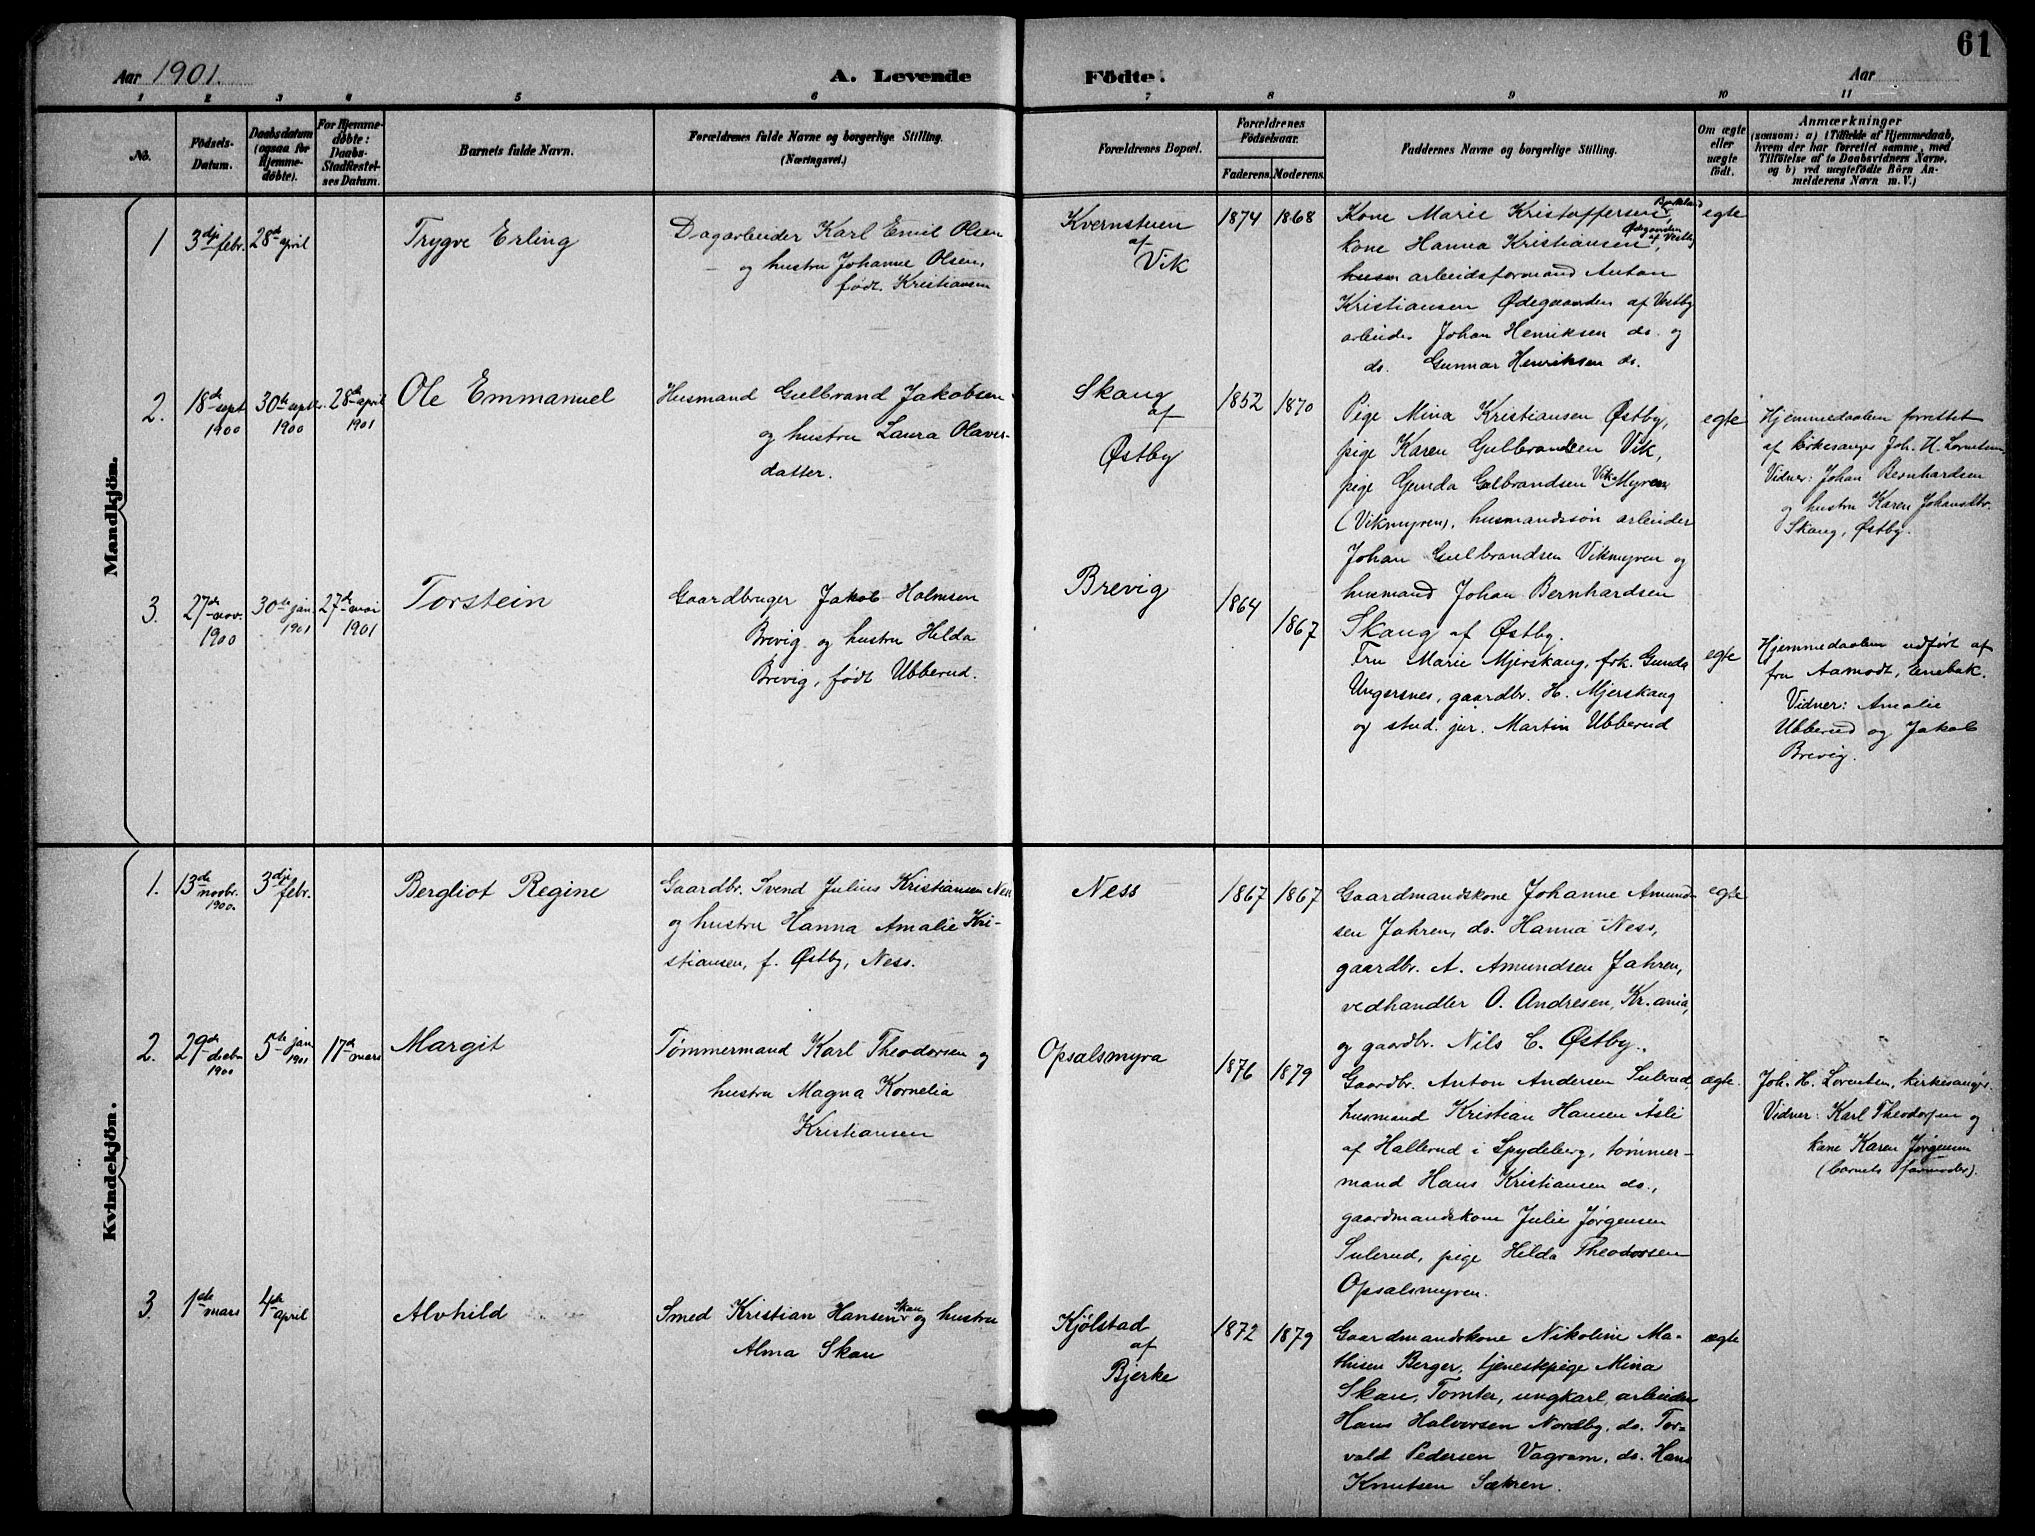 61
Aar 1901.
A. Levende
Födte.
Aar
1 2 3 4 5 6 7 8 9 10 11
No.
Födsels-
Datum.
Daabsdatum
(ogsaa for
Hjemme-
döbte).
For Hjemme-
döbte:
Daabs-
Stadfæstel-
ses Datum.
Barnets fulde Navn.
Forældrenes fulde Navne og borgerlige Stilling.
(Næringsvei.)
Forældrenes Bopæl.
Forældrenes
Födselsaar.
Faderens. Moderens.
Faddernes Navne og borgerlige Stilling.
Om ægte
eller
uægte
födt.
Anmærkninger
(saasom: a) i Tilfælde af Hjemmedaab,
hvem der har forrettet samme, med
Tilföielse af to Daabsvidners Navne.
og b) ved uægtefödte Börn An-
melderens Navn m. V.)
Mandkjön.
1
3dje febr.
28de april
Trygve Erling
Dagarbeider Karl Emil Olsen
og hustru Johanne Olsen,
født. Kristiansen
Kvernstuen
af
Vik
1874 1868
Kone Marie Kristoffersen
kone Hanna Kristiansen, Ødegaarden af Vestby
arbeidsformand Anton
Kristiansen Ødegaarden af Vestby
arbeider Johan Henriksen do. og
do. Gunnar Henriksen do.
egte
2.
18de sept
1900
30te septr.
1900
28de april
1901
Ole Emmanuel
Husmand Gulbrand Jakobsen
og hustru Laura Olaver-
datter.
Skaug
af
Østby
1852 1870
Pige Mina Kristiansen Østby,
pige Karen Gulbrandsen Vik,
pige Gunda Gulbrandsen Vik Myren
(Vikmyren), husmandssøn arbeider
Johan Gulbrandsen Vikmyren og
husmand Johan Bernhardsen
Skaug af Østby.
egte
Hjemmedaaben forrettet
af kirkesanger Joh. H. Lorentsen,
Vidner: Johan Bernhardsen
og hustru Karen Johansdtr.
Skaug, Østby.
3.
27de nov.
1900
30te jan.
1901
27de mai
1901
Torstein
Gaardbruger Jakob Holmsen
Brevig og hustru Hilda
Brevig, født Ubberud.
Brevig
1864 1867
Fru Marie Mjerskaug, frk. Gunda
Ungersnes, gaardbr. H. Mjerskaug
og stud. jur. Martin Ubberud
egte
Hjemmedaaben udført af
fru Aamodt, Enebak.
Vidner: Amalie
Ubberud og Jakob
Brevig.
Kvindekjön.
1.
13de novbr.
1900.
3dje febr.
Bergliot Regine
Gaardbr. Svend Julius Kristiansen Nes
og hustru Hanna Amalie Kri-
stiansen, f. Østby, Ness.
Ness
1867 1867
Gaardmandskone Johanne Amund-
sen Jahren, do. Hanna Ness,
gaardbr. A. Amundsen Jahren,
vedhandler O. Andresen, Kr.ania,
og gaardbr. Nils C. Østby.
egte
2.
29de decbr
1900
5te jan
1901
17de mars
Margit
Tømmermand Karl Theodorsen og
hustru Magna Kornelia
Kristiansen
Opsalsmyra
1876 1879
Gaardbr. Anton Andersen Sulerud,
husmand Kristian Hansen Åsli
af Hallerud i Spydeberg, tømmer-
mand Hans Kristiansen do.,
gaardmandskone Julie Jørgensen
Sulerud, pige Hilda Theodorsen
Opsalsmyren.
ægte.
Joh. H. Lorentsen, kirkesanger
Vidner: Karl Theodorsen og
kone Karen Jørgensen
(barnets farmoder).
3.
1ste mars
4de april
Alvhild
Smed Kristian Hansen Skau og hustru
Alma Skau
Kjølstad
af
Bjerke
1872 1879
Gaardmandskone Nikoline Ma-
thisen Berger, tjenestepige Mina
Skau, Tomter, ungkarl, arbeider
Hans Halvorsen Nordby, do. Tor-
vald Pedersen Vagram, do. Hans
Knutsen Sætren.
ægte